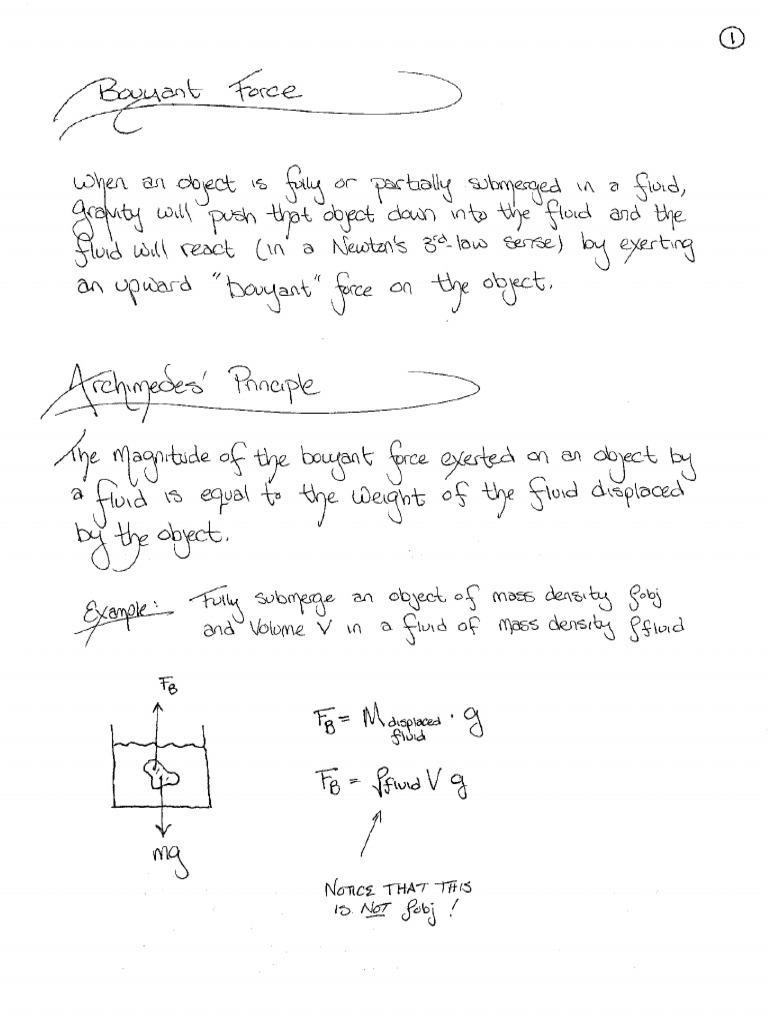 1
Bouyant Force
When an object is fully or partially submerged in a fluid,
gravity will push that object down into the fluid and the
fluid will react (in a Newton's 3rd-law sense) by exerting
an upward "bouyant" force on the object.
Archimedes' Principle
The magnitude of the bouyant force exerted on an object by
a fluid is equal to the weight of the fluid displaced
by the object.
Example: Fully submerge an object of mass density ρobj
and Volume V in a fluid of mass density ρfluid
FB
FB = Mdisplaced fluid · g
FB = ρfluid V g
mg
NOTICE THAT THIS
IS NOT ρobj !